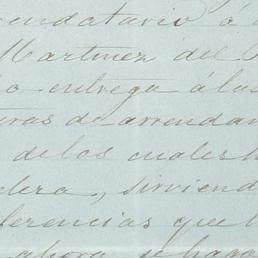 rendatario á
Martinez del
o entrega á las
ras de arrendam
de los cuales h
dera, sirviend
ferencias que h
ahora se haga